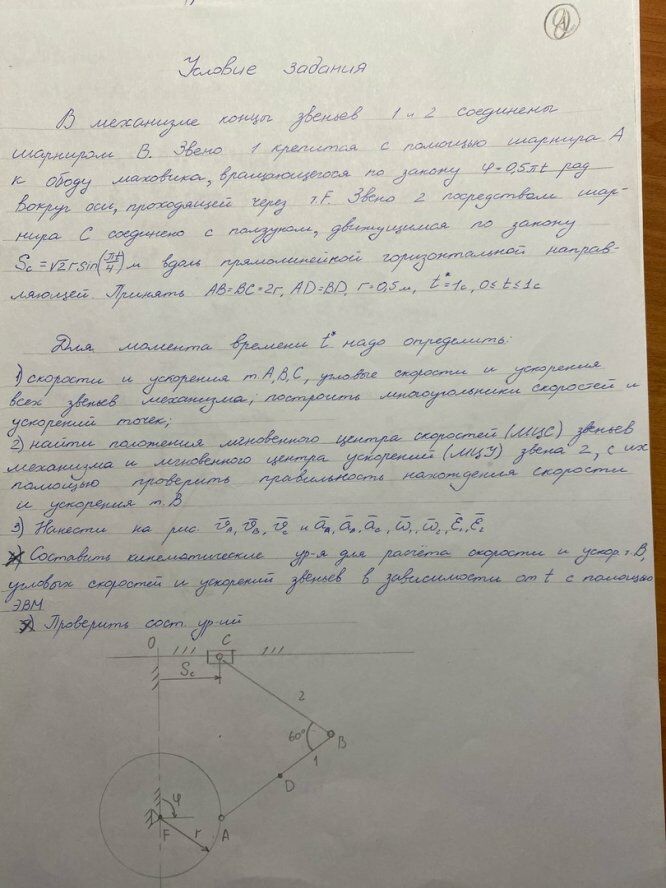 Условие задания
В механизме концы звеньев 1 и 2 соединены
шарниром В. Звено 1 крепится с помощью шарнира А
к ободу маховика, вращающегося по закону φ = 0,5πt рад
вокруг оси, проходящей через т.F. Звено 2 посредством шар-
нира С соединено с ползуном, движущимся по закону
Sc = √2 r sin(πt/4) м вдоль прямолинейной горизонтальной направ-
ляющей. Принять АВ=ВС=2r, AD=BD, r=0,5м, t*=1с, 0≤t≤1с
Для момента времени t* надо определить:
1) скорости и ускорения т.А,В,С, угловые скорости и ускорения
всех звеньев механизма; построить многоугольники скоростей и
ускорений точек;
2) найти положения мгновенного центра скоростей (МЦС) звеньев
механизма и мгновенного центра ускорений (МЦУ) звена 2, с их
помощью проверить правильность нахождения скорости
и ускорения т.В
3) Нанести на рис. v̄A, v̄B, v̄C и āA, āB, āC, ω̄1, ω̄2, ε̄1, ε̄2
Составить кинематические ур-я для расчёта скорости и ускор. т.В,
угловых скоростей и ускорений звеньев в зависимости от t с помощью
ЭВМ
Проверить сост. ур-ий
О
С
Sc
2
60°
В
1
D
φ
F
r
А